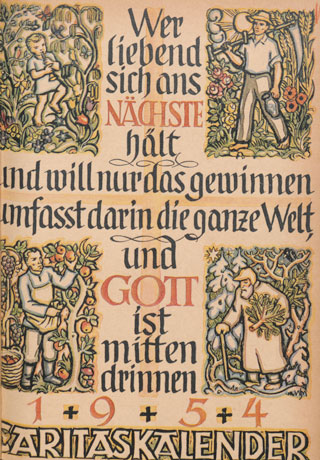 Wer
liebend
sich ans
NÄCHSTE
hält
und will nur das gewinnen
umfasst darin die ganze Welt,
und
GOTT
ist
mitten
drinnen
1 + 9 + 5 + 4
CARITASKALENDER